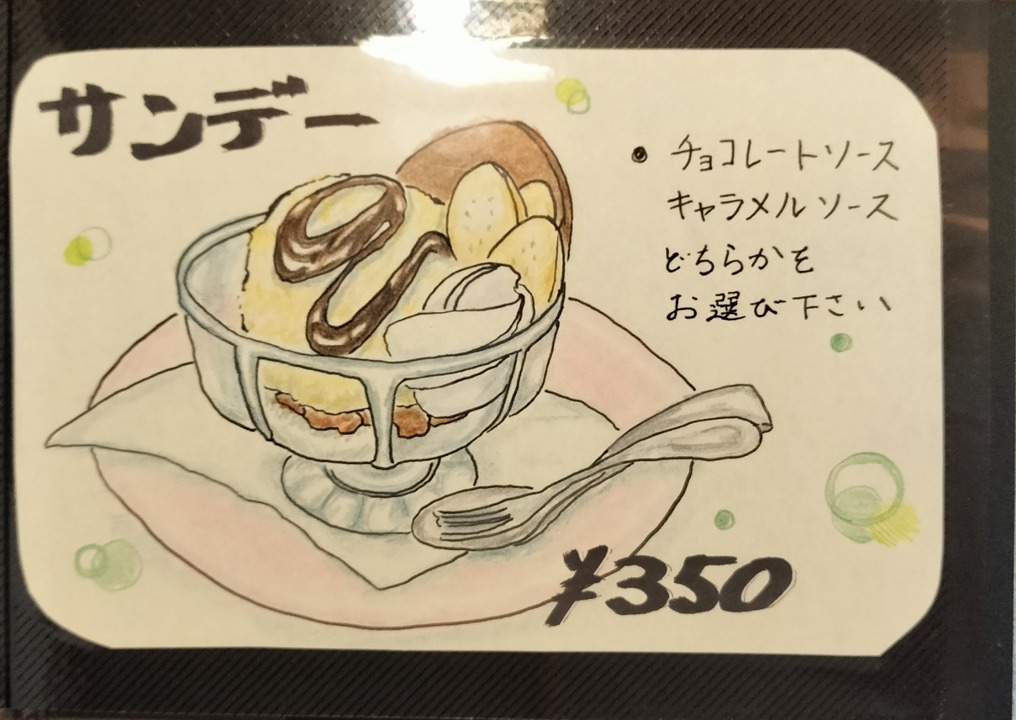 サンデー
• チョコレートソース
キャラメルソース
どちらかを
お選び下さい
¥350